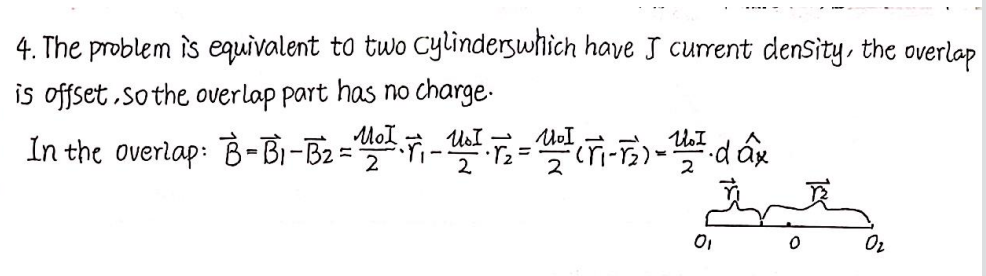 4. The problem is equivalent to two cylinders which have J current density, the overlap
is offset, so the overlap part has no charge.
In the overlap: B⃗ = B⃗₁ - B⃗₂ = μ₀I/2 · r⃗₁ - μ₀I/2 · r⃗₂ = μ₀I/2 (r⃗₁ - r⃗₂) = μ₀I/2 · d âₓ
r⃗₁ r⃗₂
O₁ O O₂